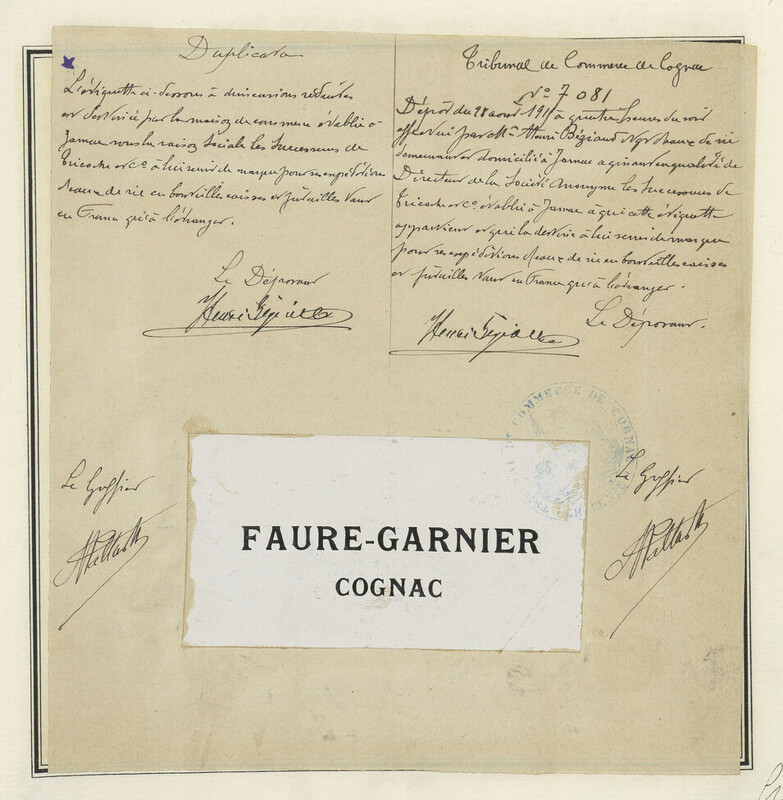 Duplicata
L'étiquette ci-dessous à dimensions réduites
est destinée par la maison de commerce établie à
Jarnac sous la raison Sociale les Successeurs de
Tricoche et Cº à lui servir de marque pour ses expéditions
d'eaux de vie en bouteilles caisses et futailles tant
en France qu'à l'étranger.
Le Déposant
Henri
Tribunal de Commerce de Cognac
Nº 7081
Dépôt du 28 aout à quatre heures du soir
effectué par Mr Henri Négt d'eaux de vie
demeurant et domicilié à Jarnac agissant en qualité de
Directeur de la Société Anonyme les Successeurs de
Tricoche et Cº établie à Jarnac à qui cette étiquette
appartient et qui la destine à lui servir de marque
pour ses expéditions d'eaux de vie en bouteilles caisses
et futailles tant en France qu'à l'étranger.
Le Déposant.
Henri
DE COMMERCE DE COGNAC
Le Greffier
Le Greffier
FAURE-GARNIER
COGNAC